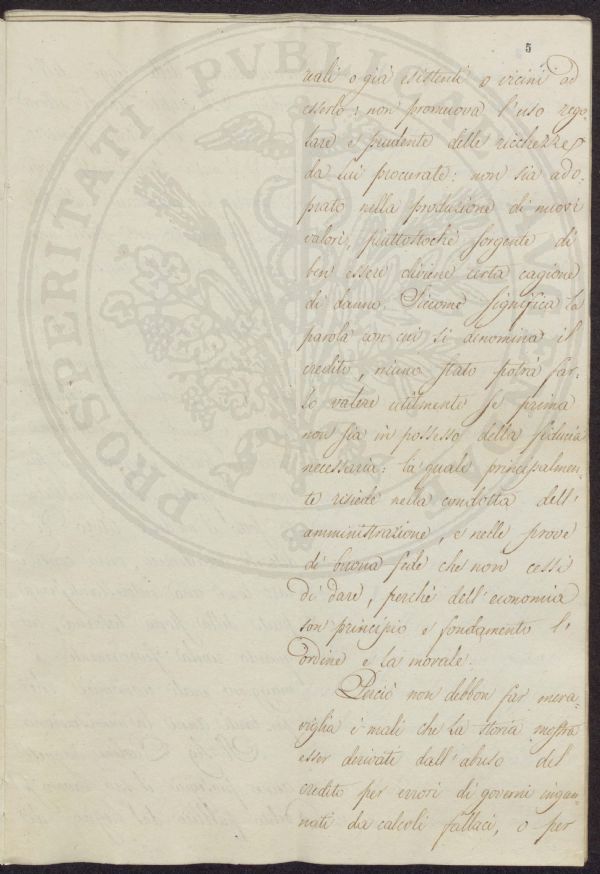 5
reali o già esistenti o vicini ad
esserlo; non promuova l'uso rego-
lare e prudente delle ricchezze
da lui procurate: non sia ado-
prato nella produzione di nuovi
valori, piuttostochè sorgente di
ben essere diviene certa cagione
di danno. Siccome significa la
parola con cui si denomina il
credito, niuno stato potrà far-
lo valere utilmente se prima
non sia in possesso della fiducia
necessaria: la quale principalmen-
te risiede nella condotta dell'
amministrazione, e nelle prove
di buona fede che non cessi
di dare, perchè dell'economia
son principio e fondamento l'
ordine e la morale.
Perciò non debbon far mera-
viglia i mali che la storia mostra
esser derivati dall'abuso del
credito per errori di governi ingan-
nati da calcoli fallaci, o per
PROSPERITATI PUBLICAE